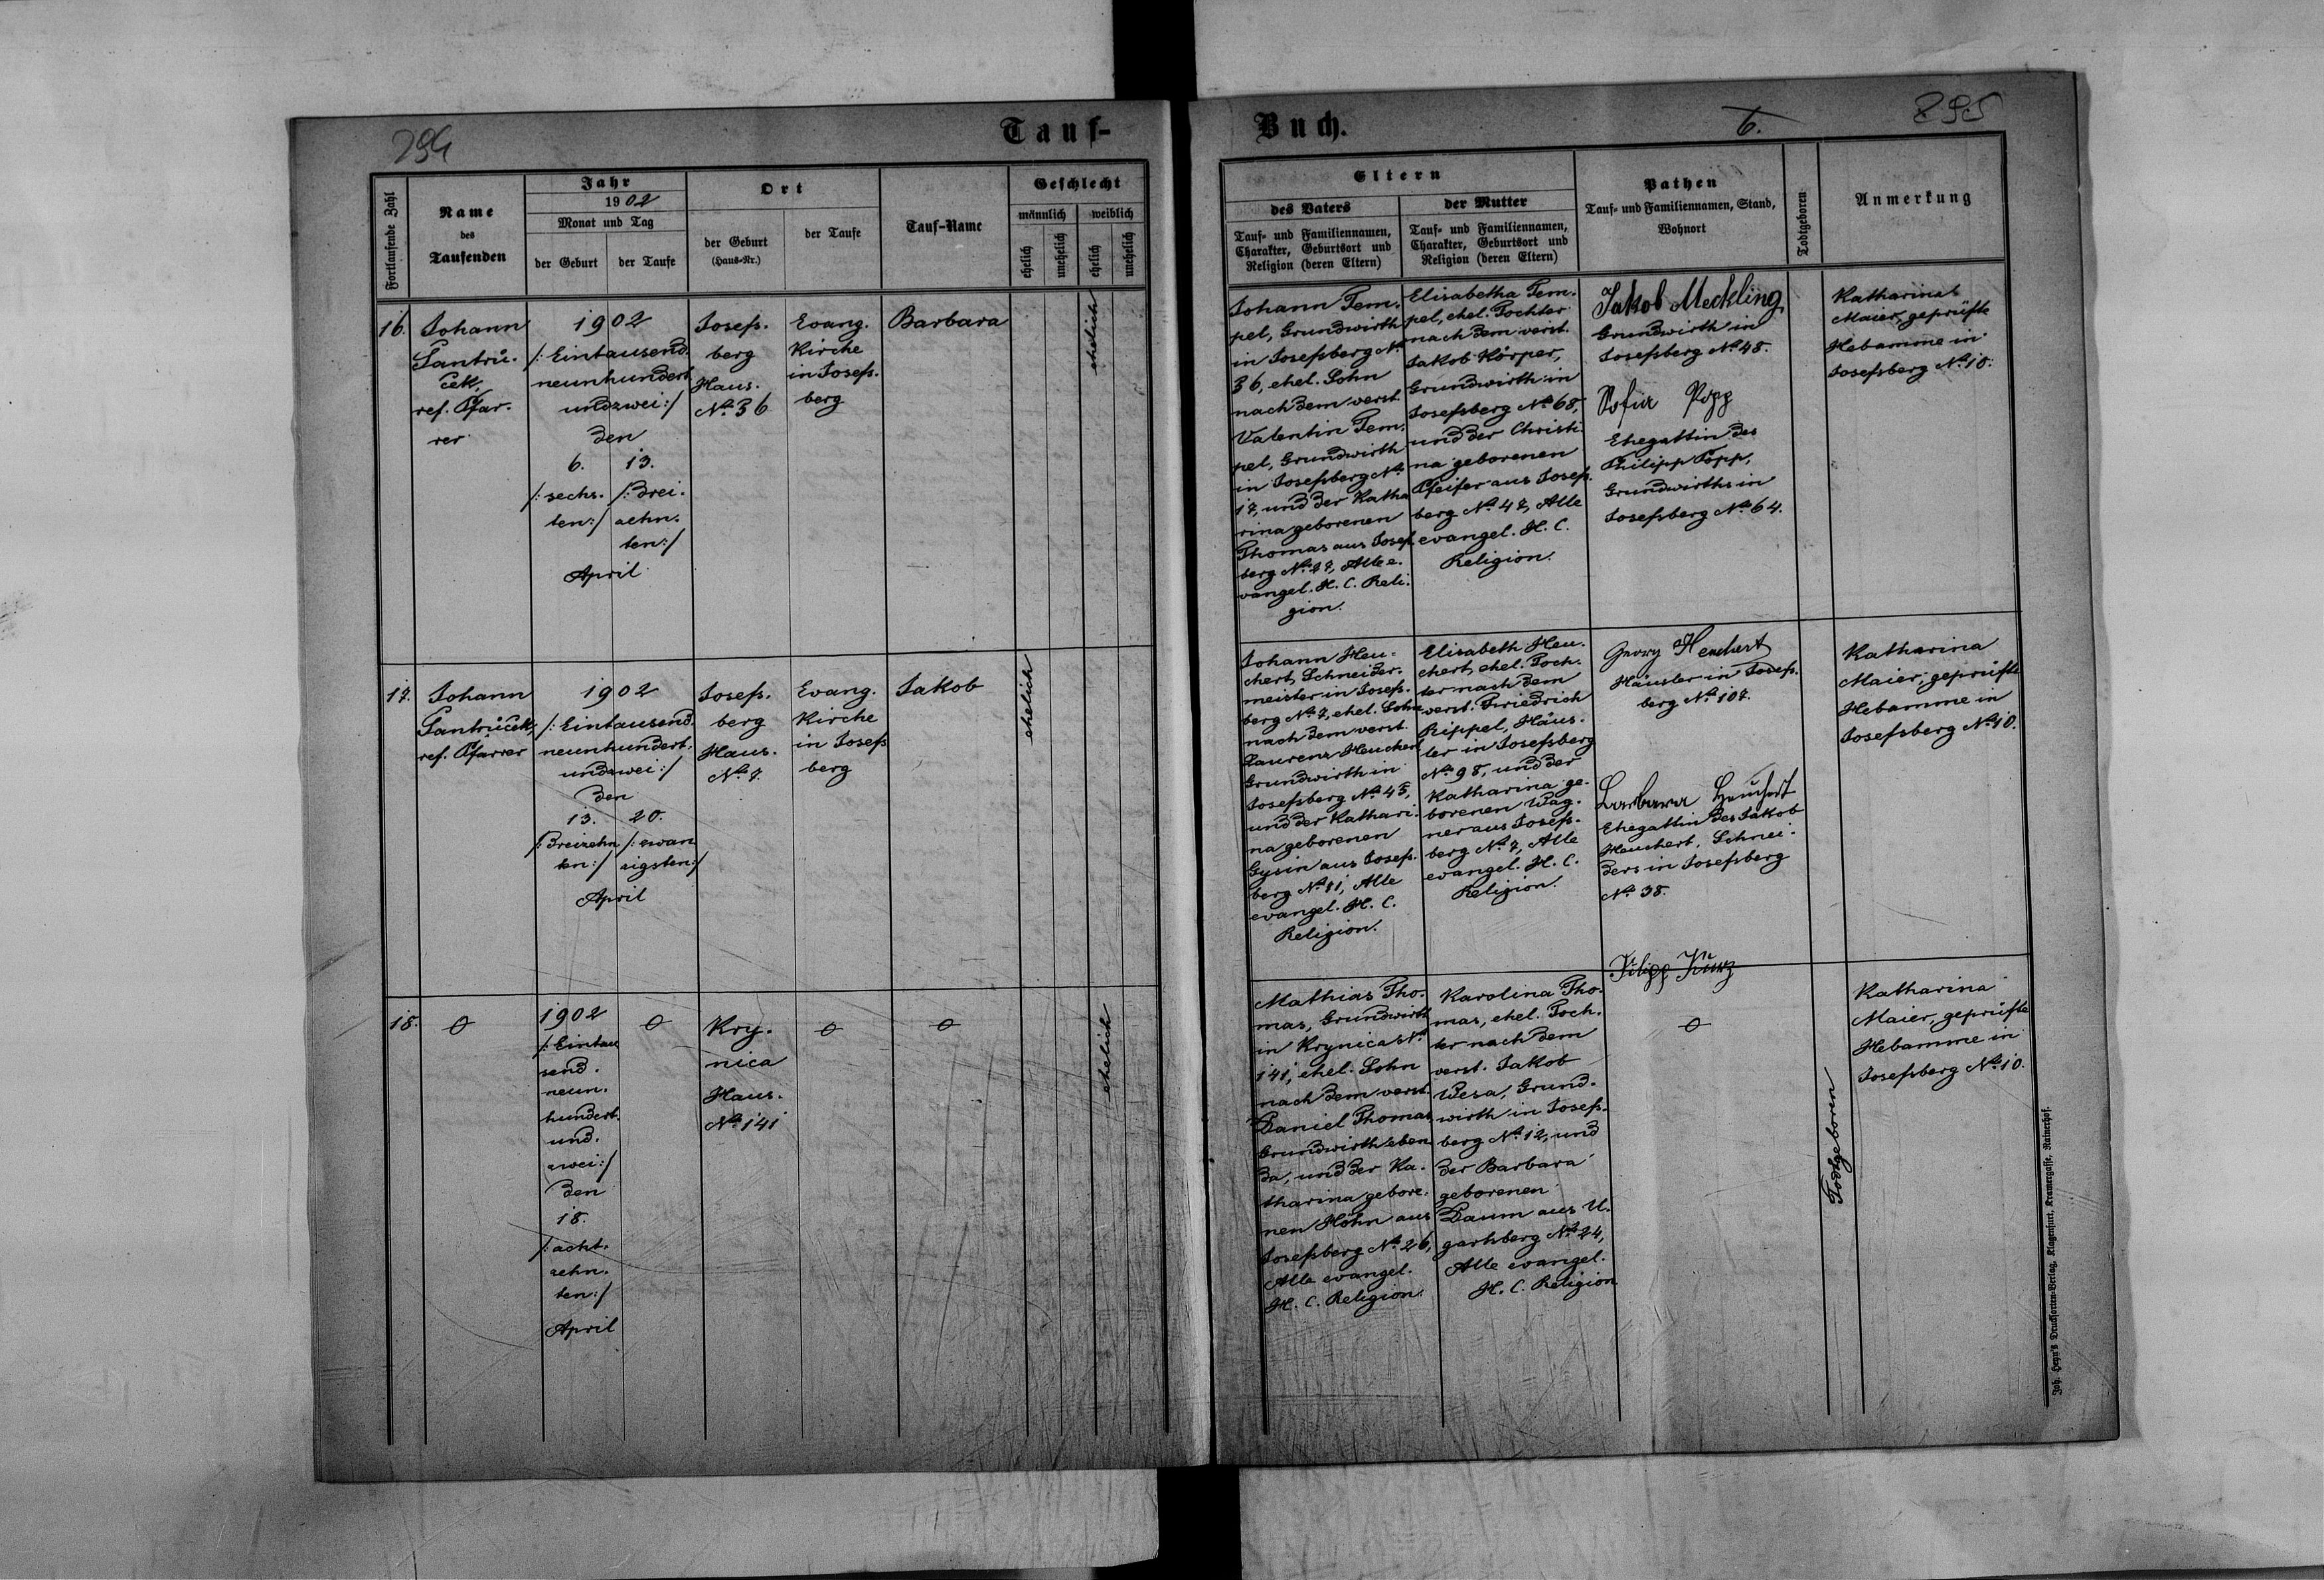 294
Tauf-
Fortlaufende Zahl
Name
des
Taufenden
Jahr
1902
Monat und Tag
der Geburt
der Taufe
Ort
der Geburt
(Haus-Nr.)
der Taufe
Tauf-Name
Geschlecht
männlich
weiblich
ehelich
unehelich
ehelich
unehelich
16.
Johann
Gantrů-
ček,
ref. Pfar-
rer
1902
/:Eintausend-
neunhundert
undzwei:/
den
6. 13.
/:sechs- /:drei-
ten:/ zehn-
ten:/
April
Josefs-
berg
Haus-
No. 36
Evang.
Kirche
in Josefs-
berg
Barbara
ehelich
17.
Johann
Gantrůček,
ref. Pfarrer
1902
/:Eintausend-
neunhundert-
undzwei:/
den
13. 20.
/:dreizehn /:zwan
ten:/ zigsten:/
April
Josefs-
berg
Haus-
No. 7
Evang.
Kirche
in Josefs
berg
Jakob
ehelich
18.
1902
/:Eintau
send-
neun-
hundert-
und-
zwei:/
den
18.
/:acht-
zehn-
ten:/
April
Kry-
nica
Haus-
No. 141
ehelich
Buch.
6.
295
Eltern
des Vaters
Tauf- und Familiennamen,
Charakter, Geburtsort und
Religion (deren Eltern)
der Mutter
Tauf- und Familiennamen,
Charakter, Geburtsort und
Religion (deren Eltern)
Pathen
Tauf- und Familiennamen, Stand,
Wohnort
Todtgeboren
Anmerkung
Johann Tem-
pel, Grundwirth
in Josefsberg No.
36, ehel. Sohn
nach dem verst.
Valentin Tem-
pel, Grundwirth
in Josefsberg No.
17, und der Katha
rina geborenen
Thomas aus Josefs
berg No. 27, Alle e-
vangel. H. C. Reli-
gion.
Elisabetha Tem-
pel, ehel. Tochter
nach dem verst.
Jakob Körper,
Grundwirth in
Josefsberg No. 68,
und der Christi-
na geborenen
Pfeifer aus Josefs-
berg No. 47, Alle
evangel. H. C.
Religion.
Jakob Meckling,
Grundwirth in
Josefsberg No. 48.
Sofia Popp
Ehegattin des
Philipp Popp,
Grundwirths in
Josefsberg No. 64.
Katharina
Maier, geprüfte
Hebamme in
Josefsberg No. 10.
Johann Heu-
chert, Schneider-
meister in Josefs-
berg No. 7, ehel. Sohn
nach dem verst.
Laurenz Heuchert
Grundwirth in
Josefsberg No. 45,
und der Kathari-
na geborenen
Gysin aus Josefs-
berg No. 11, Alle
evangel. H. C.
Religion.
Elisabeth Heu-
chert, ehel. Toch-
ter nach dem
verst. Friedrich
Rippel, Häus-
ler in Josefsberg
No. 98, und der
Katharina ge-
borenen Wag-
ner aus Josefs-
berg No. 7, Alle
evangel. H. C.
Religion.
Georg Heuchert
Häusler in Josefs-
berg No. 107.
Barbara Heuchert
Ehegattin des Jakob
Heuchert, Schnei-
ders in Josefsberg
No. 38.
Filipp Kurz
Katharina
Maier, geprüfte
Hebamme in
Josefsberg No. 10.
Mathias Tho-
mas, Grundwirth
in Krynica No.
141, ehel. Sohn
nach dem verst.
Daniel Thomas,
Grundwirth eben
da, und der Ka-
tharina gebore-
nen Höhn aus
Josefsberg No. 26,
Alle evangel.
H. C. Religion.
Karolina Tho-
mas, ehel. Toch-
ter nach dem
verst. Jakob
Wesa, Grund-
wirth in Josefs-
berg No. 12, und
der Barbara
geborenen
Daum aus U-
gartsberg No. 24,
Alle evangel.
H. C. Religion
Todtgeboren
Katharina
Maier, geprüfte
Hebamme in
Josefsberg No. 10.
Joh. Heyn's Drucksorten-Verlag, Klagenfurt, Kramergasse, Rainerhof.